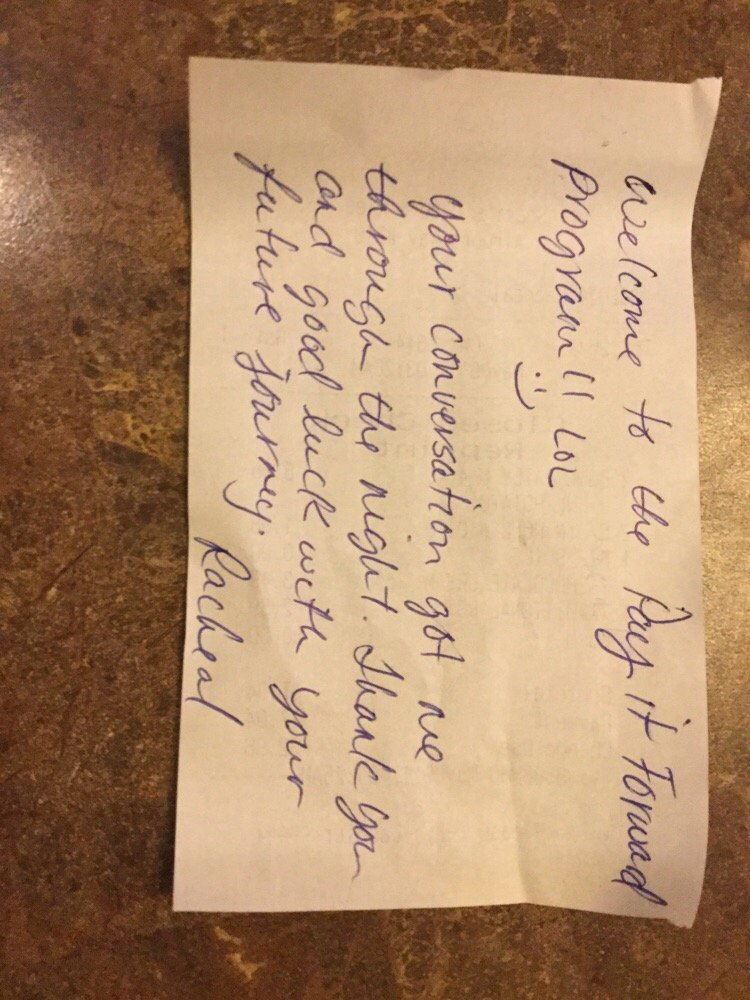 Welcome to the Pay it Forward
Program!! LOL
:)
your conversation got me
through the night. Thank you
and good luck with your
future journey.
Racheal